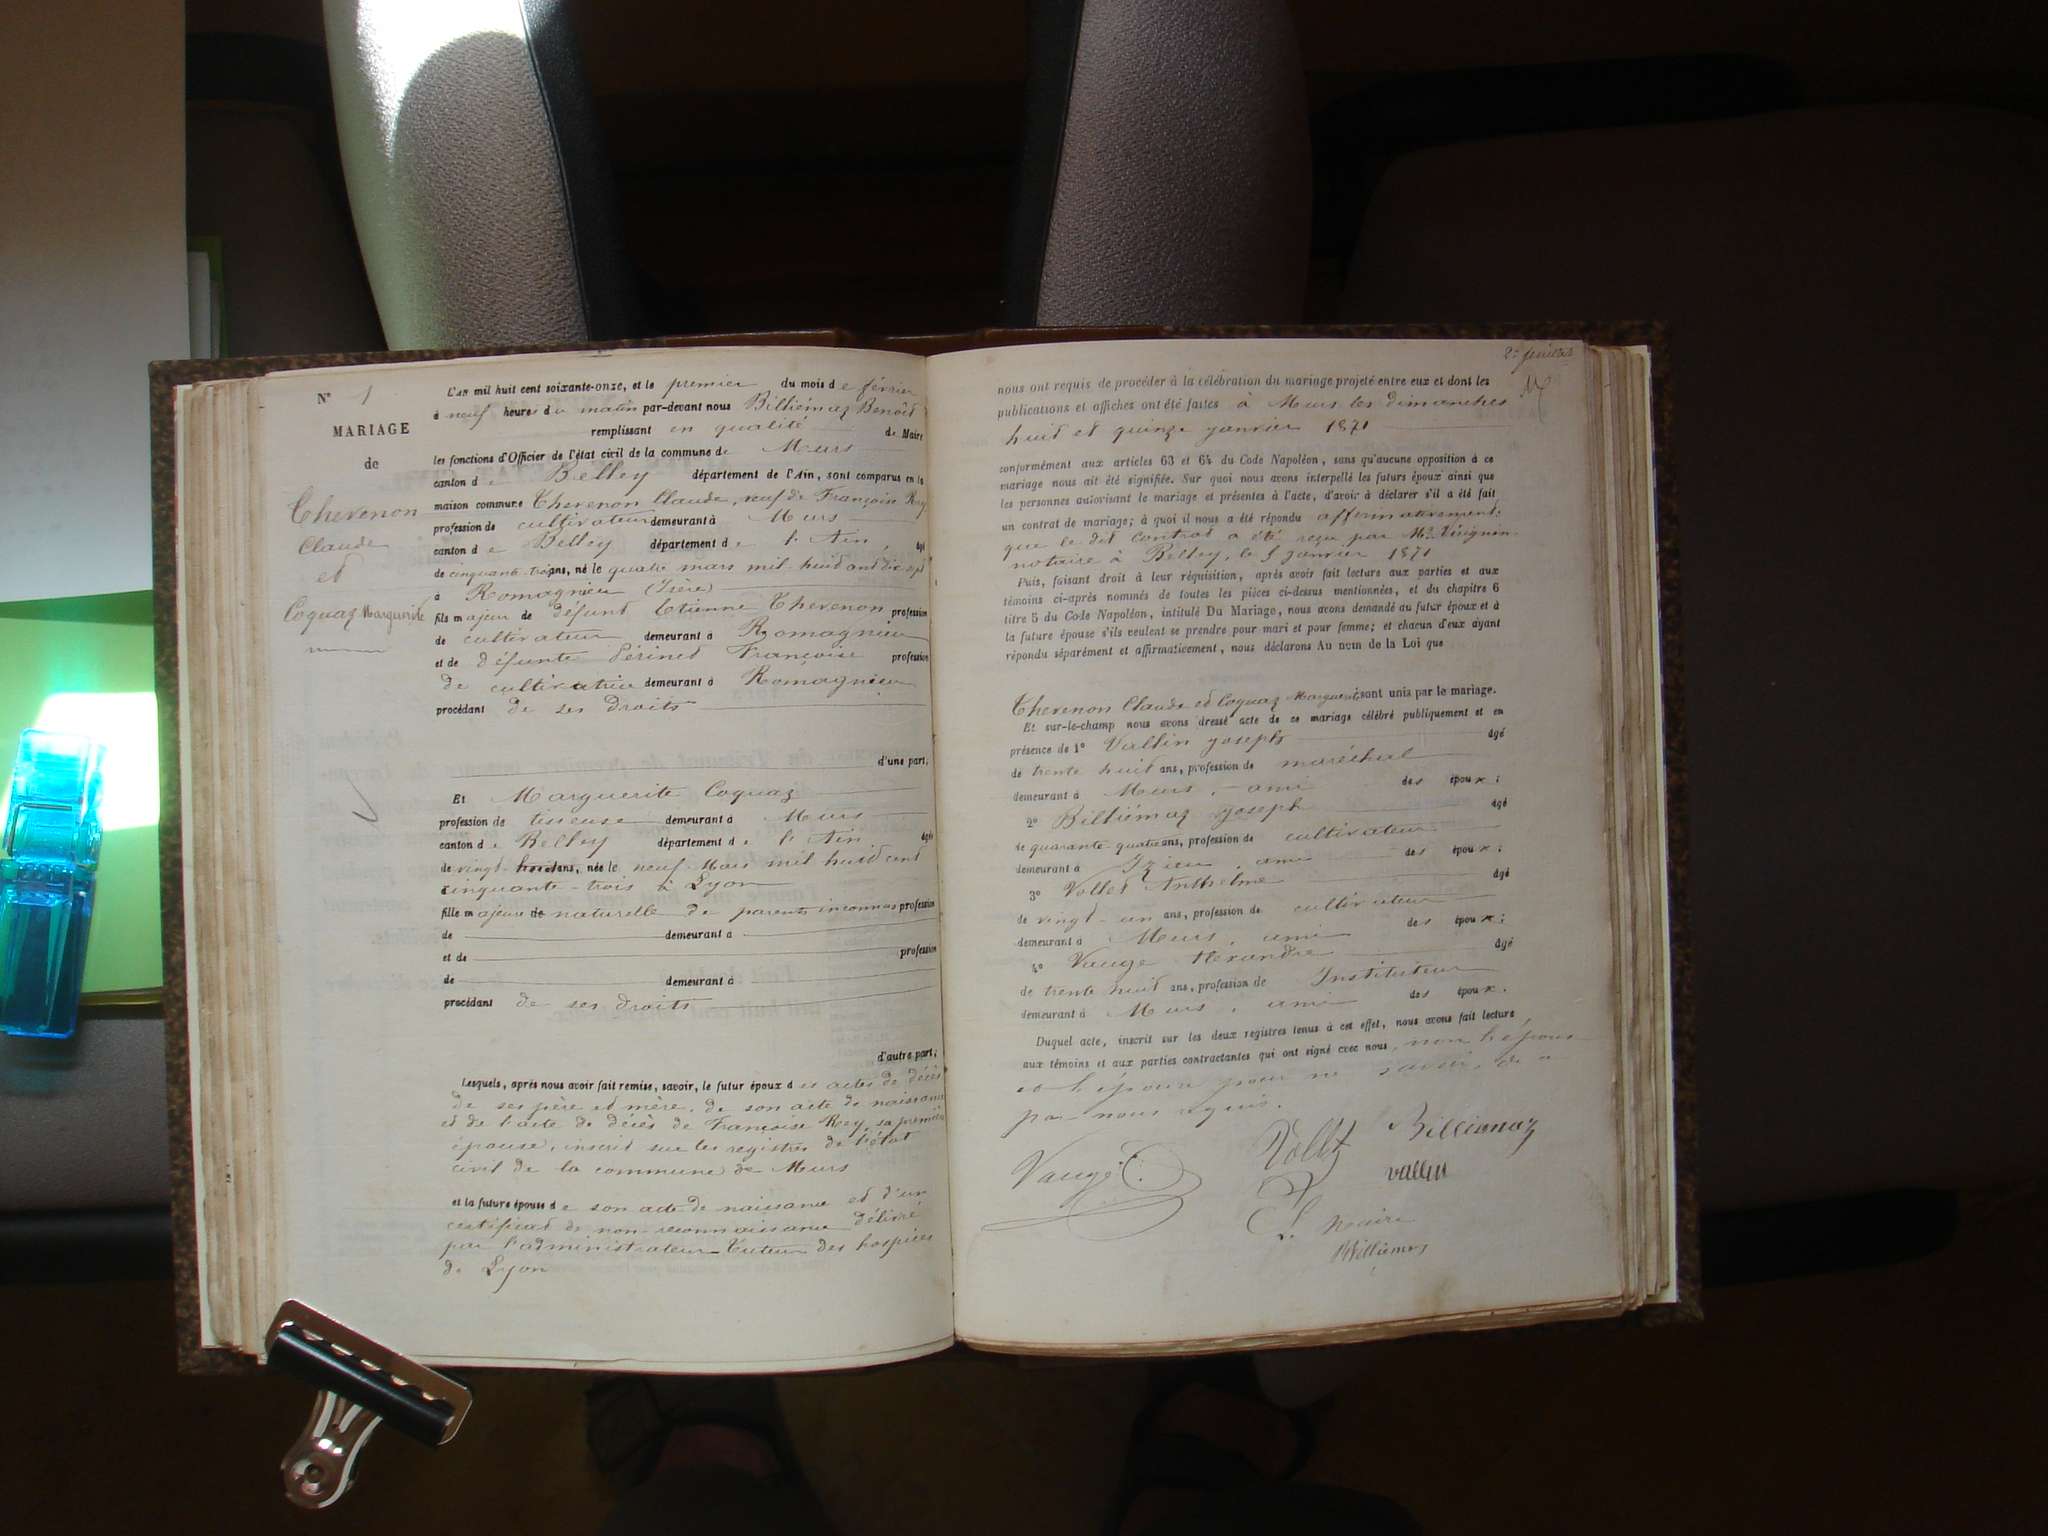 N° 1
MARIAGE
de
Thevenon
Claude
et
Coquaz Marguerite
L'an mil huit cent soixante-onze, et le premier du mois de février
à neuf heures du matin par-devant nous Billiémaz Benoit
remplissant en qualité de Maire
les fonctions d'Officier de l'état civil de la commune de Murs
canton de Belley département de l'Ain, sont comparus en la
maison commune Thevenon Claude, veuf de Françoise Rey
profession de cultivateur demeurant à Murs
canton de Belley département de l'Ain, âgé
de cinquante-trois ans, né le quatre mars mil huit cent dix sept
à Romagnieu (Isère)
fils majeur de défunt Etienne Thevenon profession
de cultivateur demeurant à Romagnieu
et de défunte Périnet Françoise profession
de cultivatrice demeurant à Romagnieu
procédant de ses droits
d'une part;
Et Marguerite Coquaz
profession de tisseuse demeurant à Murs
canton de Belley département de l'Ain âgée
de vingt ans, née le neuf Mars mil huit cent
cinquante-trois à Lyon
fille majeure de naturelle de parents inconnus profession
de demeurant à
et de profession
de demeurant à
procédant de ses droits
d'autre part;
Lesquels, après nous avoir fait remise, savoir, le futur époux des actes de décès
de ses père et mère, de son acte de naissance
et de l'acte de décès de Françoise Rey, sa première
épouse, inscrit sur les registres de l'état
civil de la commune de Murs
et la future épouse de son acte de naissance et d'un
certificat de non-reconnaissance délivré
par l'administrateur-Tuteur des hospices
de Lyon
2e feuillet
nous ont requis de procéder à la célébration du mariage projeté entre eux et dont les
publications et affiches ont été faites à Murs les dimanches
huit et quinze janvier 1871
conformément aux articles 63 et 64 du Code Napoléon, sans qu'aucune opposition à ce
mariage nous ait été signifiée. Sur quoi nous avons interpellé les futurs époux ainsi que
les personnes autorisant le mariage et présentes à l'acte, d'avoir à déclarer s'il a été fait
un contrat de mariage; à quoi il nous a été répondu affirmativement:
que le dit contrat a été reçu par Me
notaire à Belley, le 5 janvier 1871
Puis, faisant droit à leur réquisition, après avoir fait lecture aux parties et aux
témoins ci-après nommés de toutes les pièces ci-dessus mentionnées, et du chapitre 6
titre 5 du Code Napoléon, intitulé Du Mariage, nous avons demandé au futur époux et à
la future épouse s'ils veulent se prendre pour mari et pour femme; et chacun d'eux ayant
répondu séparément et affirmativement, nous déclarons Au nom de la Loi que
Thevenon Claude et Coquaz Marguerite sont unis par le mariage.
Et sur-le-champ nous avons dressé acte de ce mariage célébré publiquement et en
présence de 1° Vallin joseph âgé
de trente huit ans, profession de maréchal
demeurant à Murs, ami des époux;
2° Billiémaz joseph âgé
de quarante-quatre ans, profession de cultivateur
demeurant à Izieu, ami des époux;
3° Vollet Anthelme âgé
de vingt-un ans, profession de cultivateur
demeurant à Murs, ami des époux;
4° Vauge Alexandre âgé
de trente huit ans, profession de Instituteur
demeurant à Murs, ami des époux.
Duquel acte, inscrit sur les deux registres tenus à cet effet, nous avons fait lecture
aux témoins et aux parties contractantes qui ont signé avec nous, non l'époux
et l'épouse pour ne savoir, de ce
par nous requis.
Vauge Vollet Billiémaz
vallin
Le maire
Billiémaz